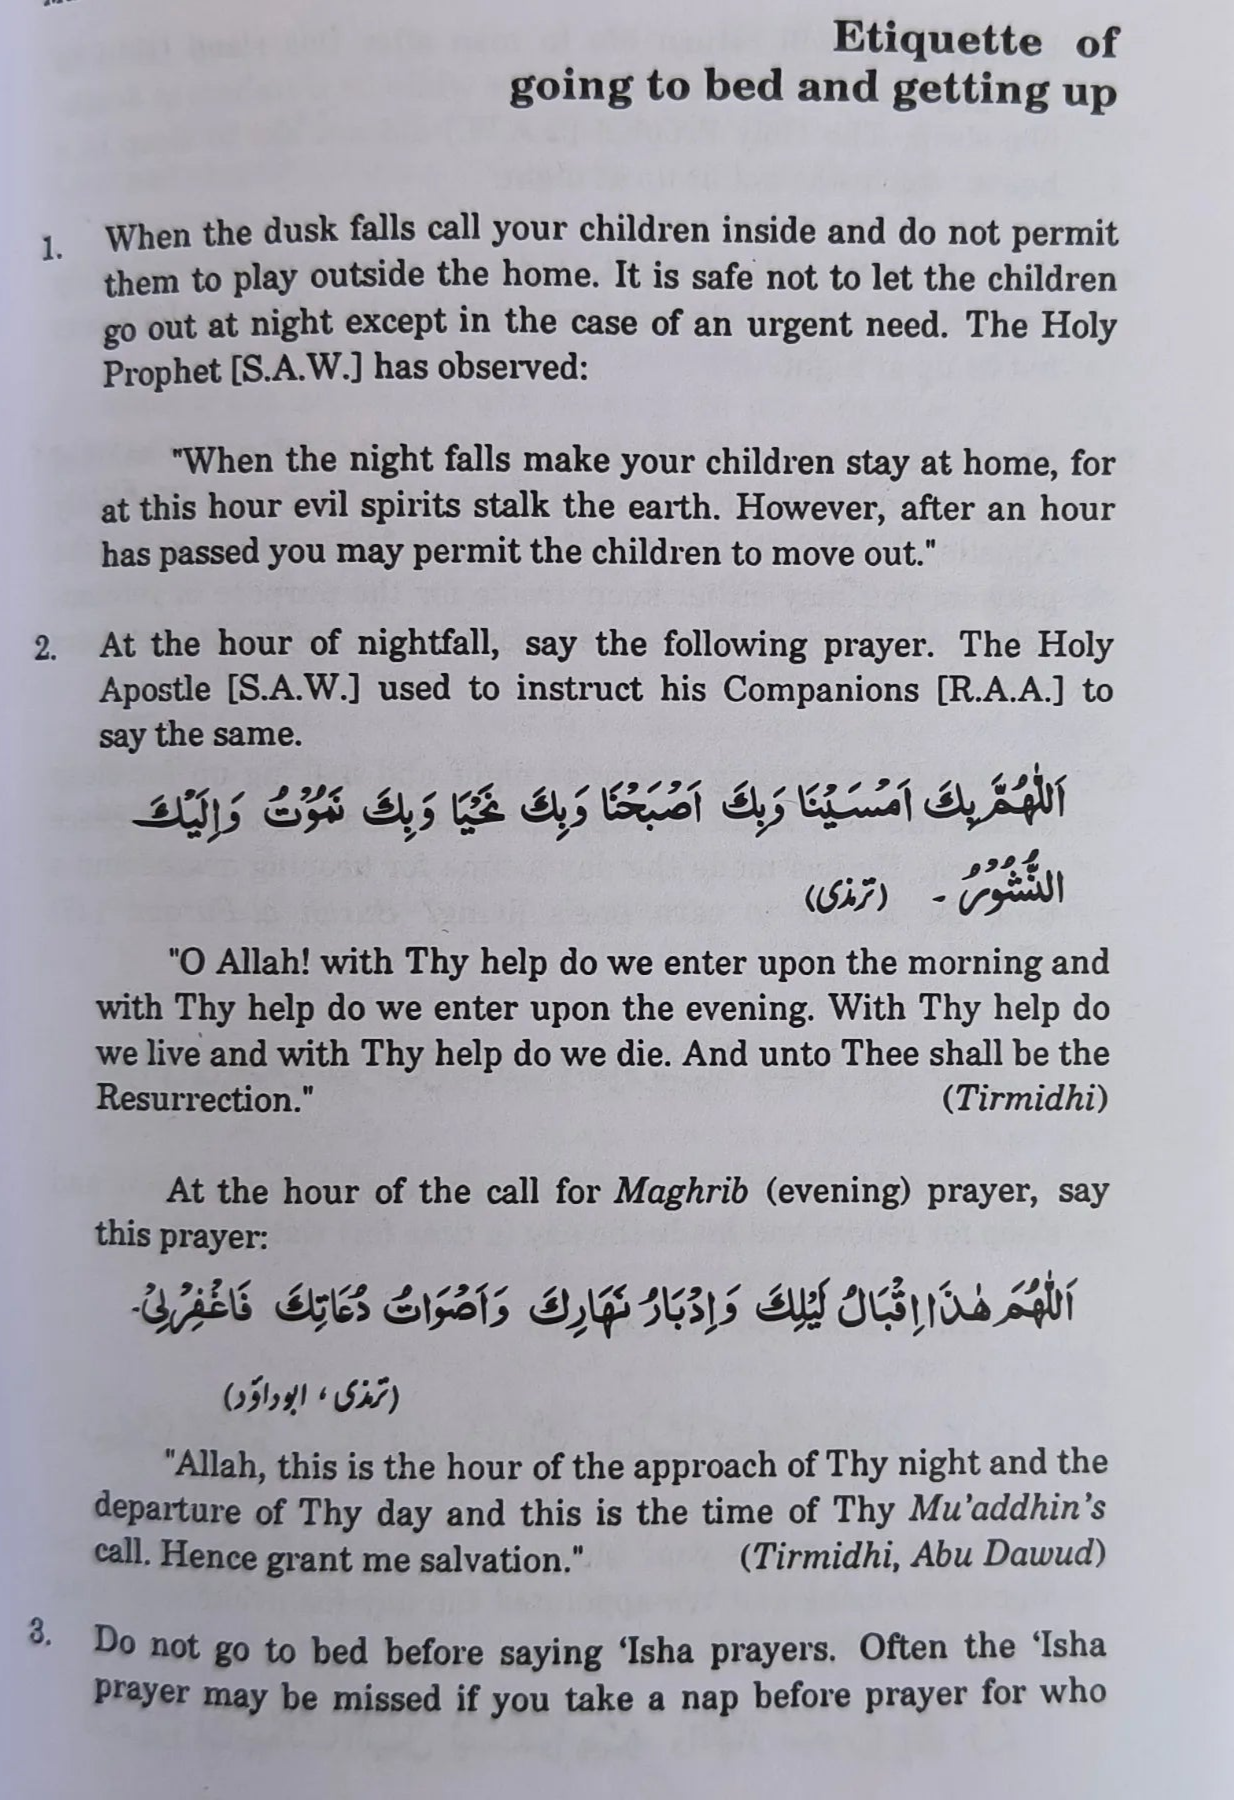 Etiquette of
going to bed and getting up
1. When the dusk falls call your children inside and do not permit
them to play outside the home. It is safe not to let the children
go out at night except in the case of an urgent need. The Holy
Prophet [S.A.W.] has observed:
"When the night falls make your children stay at home, for
at this hour evil spirits stalk the earth. However, after an hour
has passed you may permit the children to move out."
2. At the hour of nightfall, say the following prayer. The Holy
Apostle [S.A.W.] used to instruct his Companions [R.A.A.] to
say the same.
اَللّٰهُمَّ بِكَ اَمْسَيْنَا وَبِكَ اَصْبَحْنَا وَبِكَ نَحْيَا وَبِكَ نَمُوْتُ وَاِلَيْكَ
النُّشُوْرُ - (ترمذی)
"O Allah! with Thy help do we enter upon the morning and
with Thy help do we enter upon the evening. With Thy help do
we live and with Thy help do we die. And unto Thee shall be the
Resurrection." (Tirmidhi)
At the hour of the call for Maghrib (evening) prayer, say
this prayer:
اَللّٰهُمَ هٰذَا اِقْبَالُ لَيْلِكَ وَاِدْبَارُ نَهَارِكَ وَاَصْوَاتُ دُعَاتِكَ فَاغْفِرْلِيْ-
(ترمذی، ابوداؤد)
"Allah, this is the hour of the approach of Thy night and the
departure of Thy day and this is the time of Thy Mu’addhin’s
call. Hence grant me salvation." (Tirmidhi, Abu Dawud)
3. Do not go to bed before saying ‘Isha prayers. Often the ‘Isha
prayer may be missed if you take a nap before prayer for who